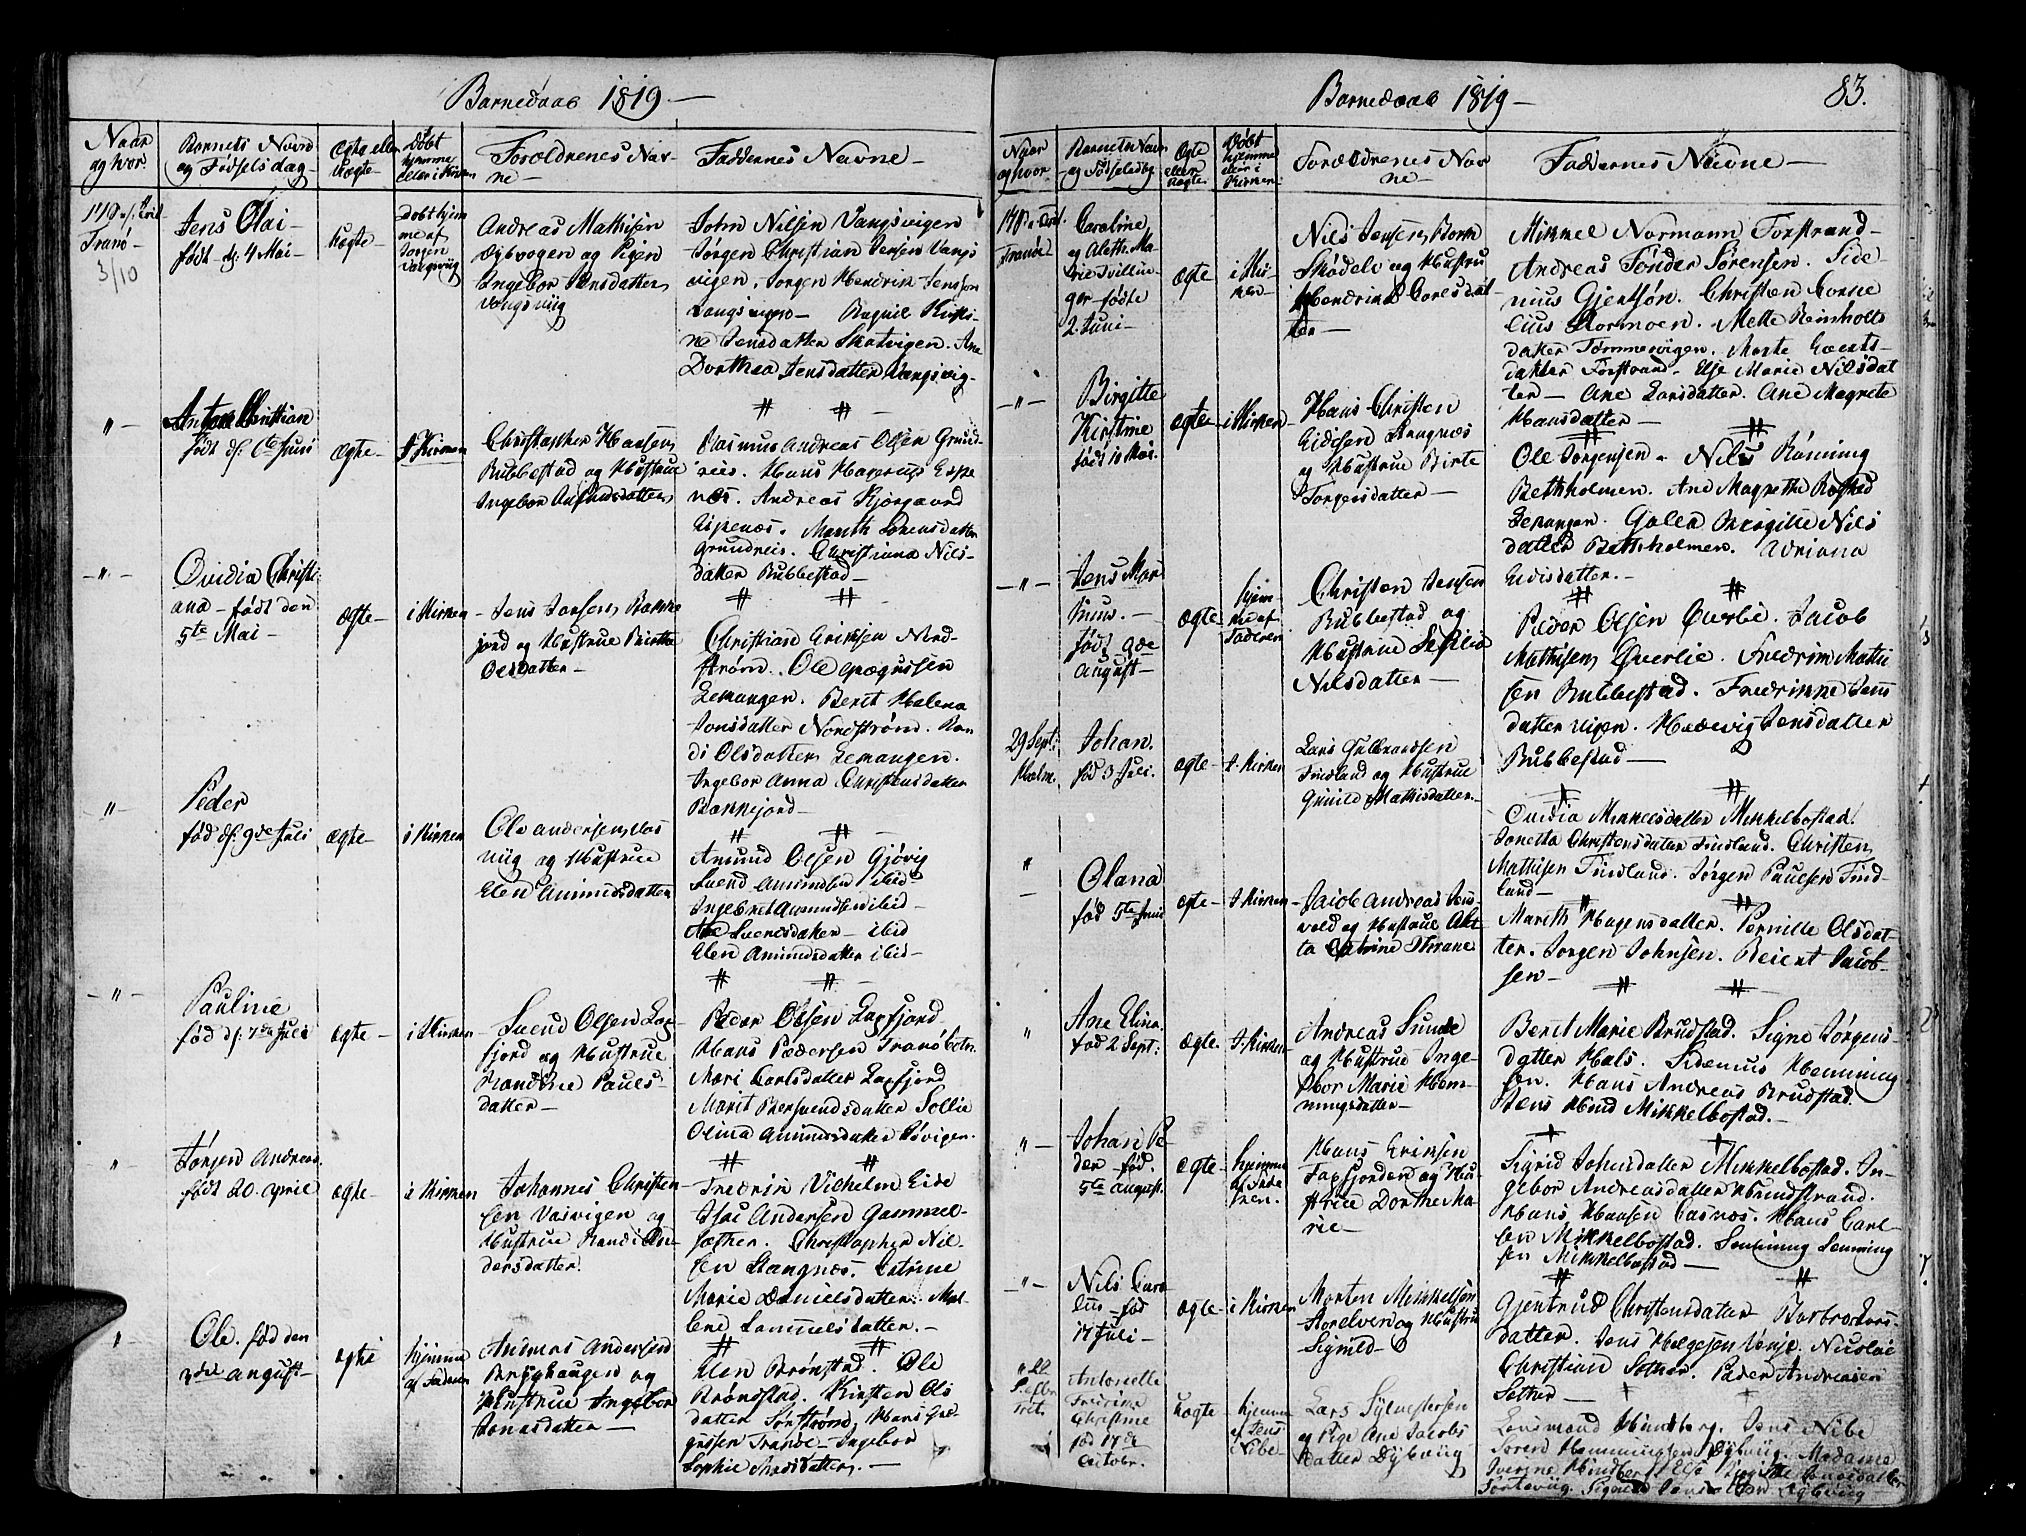 Barnedaab 1819 —
Naar og hvor.
Barnets Navn og Fødselsdag —
Ægte eller Uægte —
Døbt hjemme eller i Kirken
Forældrenes Navne —
Faddernes Navne —
Tranø —
3/10
Jens Olai —
født d: 4 Mai —
Uægte —
Døbt hjem
me af
Jørgen
Vangsviig
Andreas Mathisen
og Pigen
Ingebor Jensdatter
Vangsviig
John Nilsen Vangsvigen
Jørgen Christian Jensen Vangs
vigen. Jørgen Hendrik Jenssen
Vangsvigen — Ragnil Kirsti-
ne Jensdatter Skatvigen. Ane
Dorthea Jensdatter Vangsvig —
" —
Anton Christian
født d: 6te Juni
Ægte —
i Kirken
Christopher Hansen
Rubbestad og Hustrue
Ingebor Amundsdatter
Rasmus Andreas Olsen Grund-
reis. Hans Hagerup Espe
næs. Andreas Kjørgaard
Espenæs. Marith Sørensdatter
Grundreis. Christiana Nils-
datter Rubbestad —
— " —
Ovidia Christi
ana — født den
5te Mai —
Ægte —
i Kirken —
Jens Jonsen Bakke
jord og Hustrue Birthe
Olsdatter —
Christian Eriksen Nord-
strøm. Ole Magnussen
Lemangen. Berit Halena
Jonsdatter Nordstrøm. Ran
di Olsdatter Lemangen.
Ingebor Anna Christensdatter
Bakkejord —
"
Peder
fød d: 9de Juli
Ægte —
i Kirken
Ole Andersen
viig og Hustrue
Elen Amundsdatter
Amund Olsen Gjøvig
Svend Amundsen ibid —
Ingebret Amundsen ibid —
Ane Svendsdatter — ibid
Elen Amundsdatter ibid —
— " —
Pauline
fød d: 7de Juli
Ægte —
i Kirken —
Svend Olsen Lax
fjord og Hustrue
Randine Pauls-
datter —
Peder Olsen Laxfjord
Hans Pedersen Tranøbotn.
Mari Carlsdatter Laxfjord
Marit Bersvendsdatter Sollie
Olina Amundsdatter Løvigen.
"
Jørgen Andreas.
født 20. April
Ægte —
i Kirken
Johannes Christen
sen Vasvigen og
Hustrue Randi An-
dersdatter.
Fredrik Vilhelm Eide
Isac Andersen Gammel-
sæther. Christopher Nil-
sen Stangnæs. Catrine
Marie Danielsdatter. Mal-
lene Samuelsdatter. —
"
Ole. fød den
2den August —
Ægte
hjemme
af Faderen
Andreas Andersen
Brøghaugen og
Hustrue Ingebor
Jonasdatter —
Elen Brøndstad. Ole
Brøndstad. Kirsten Ols
datter Sørstrømd. Hans Gre-
gussen Tranøe — Ingebor
Sophie Madsdatter. —
Barnedaab 1819 —
83.
Naar og hvor
Barnets Navn og Fødselsdag
Ægte eller Uægte
Døbt hjemme eller i Kirken
Forældrenes Navne —
Faddernes Navne —
Tranøe
Caroline
og Aleth. Ma-
rie Tvillin-
ger — fødte
2 Juni —
Ægte
i Kir-
ken —
Nils Jensen Born
Skødelv og Hustru
Hendrikke Carlsdat-
ter —
Mikkel Normann Forstrand —
Andreas Tønder Sørensen. Side
nius Gjertsøn. Christen Corne
lius Mormoen. Mette Reinholts
datter Tømmervigen. Marte Goerts-
datter Forstrand. Else Marie Nilsdat
ter — Ane Larsdatter. Ane Magrete
Hansdatter —
— " —
Birgitte
Kirstine
født 10 Mai.
Ægte —
i Kirken —
Hans Christen
Eidisen Stangnæs
og Hustrue Birte
Torgersdatter —
Ole Jørgensen. Nils Rønning
Bethholmen. Ane Magrethe Rafsted
Lemangen. Golla Birgitte Nils
datter Bethholmen. Adriana
Eidisdatter. —
— " —
Jens Mar
—
født 9de
August —
Ægte —
hjem-
me af
Faderen
Christen Jensen
Rubbestad og
Hustrue Sesilia
Nilsdatter —
Peder Olsen Øverlie. Jacob
Mathisen Øverlie. Fredrik Mathi
sen Rubbestad. Fredrikke Jens
datter Vigen. Hedevig Jensdatter
Rubbestad —
29 Sept:
Holm.
Johan.
fød 3 Juli.
Ægte —
i Kirken
Lars Gulbrandsen
Findland og Hustrue
Gunild Mathisdatter. —
Ovidia Mikkelsdatter Mikkelbostad.
Jonetta Christensdatter Findland. Christen
Mathisen Findland. Jørgen Paulsen Find-
land —
"
Olana
fød 5te Juni
Ægte —
i Kirken —
Jacob Andreas Jens
vold og Hustrue
Catrine Strane
Marith Hagensdatter. Pernille Olsdat-
ter. Jørgen Johnsen. Beient Jacob-
sen —
"
Ane Elina.
fød 2 Sept:
Ægte.
i Kirken —
Andreas Sunde
og Hustrue Inge-
bor Marie Hem-
mingsdatter —
Berit Marie Brudstad. Signe Jørgens-
datter Hals. Sidenius Hemming
sen. Hans Andreas Brudstad.
Jens Hind Mikkelbostad. —
" —
Johan Pe
der — fød.
5te August.
Ægte —
hjemme
Hans Eriksen
Faxfjorden og Hu-
strue Dorthe Ma-
rie —
Sigrid Johnsdatter Mikkelbostad. In-
gebor Andreasdatter Hundstrand.
Hans Hansen Casnæs. Hans Carl-
sen Mikkelbostad. Henning Henning
sen Mikkelbostad —
" —
Nils Caro
lus — fød
17 Juli —
Ægte —
i Kirken
Morten Mikkelsøn
Storelven og Hustrue
Sigrild —
Gjertrud Christensdatter Barbro Lars-
datter. Jens Helgesen Vinje. Nicolai
Christian Sether. Peder Andreasen
Sether —
Antonette
Fredrike
Christine
fød 17de
Octobr.
Uægte
hjemme
af Jens
Nibe
Lars Sylvestersen
og Pige Ane Jacobs
datter Dybviig
Lensmand Hundberg. Jens Nibe
Søren Hemmingsen Dybviig. Madame